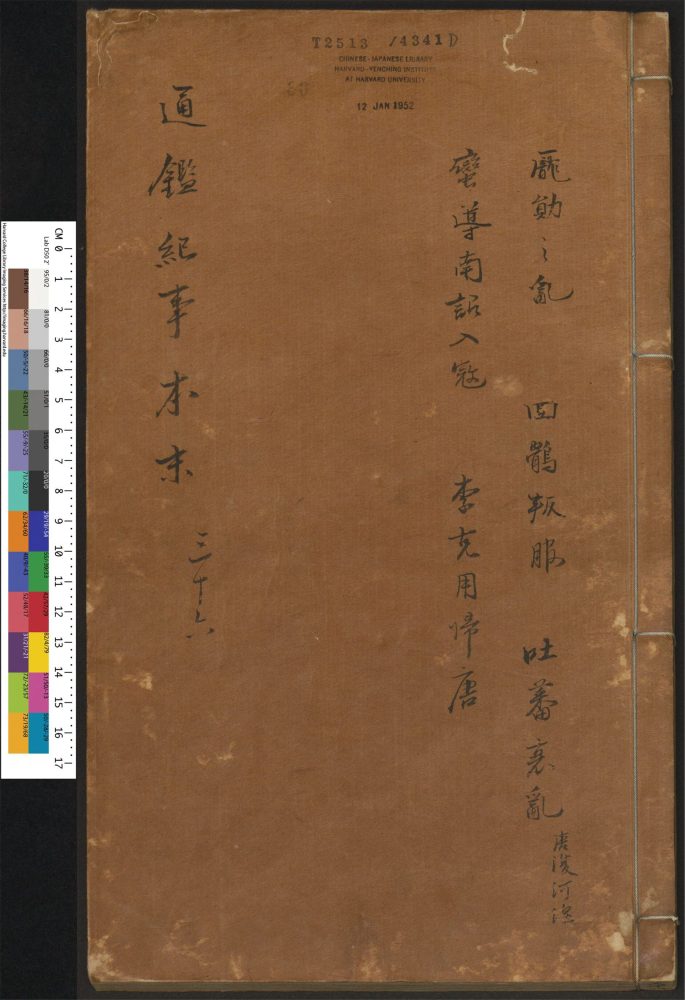 T2513 /4341 D
CHINESE-JAPANESE LIBRARY
HARVARD-YENCHING INSTITUTE
AT HARVARD UNIVERSITY
12 JAN 1952
龐勛之亂 回鶻叛服 吐蕃衰亂 唐復河湟
蠻導南詔入寇 李克用歸唐
通鑑紀事本末 三十六
CM 0 1 2 3 4 5 6 7 8 9 10 11 12 13 14 15 16 17